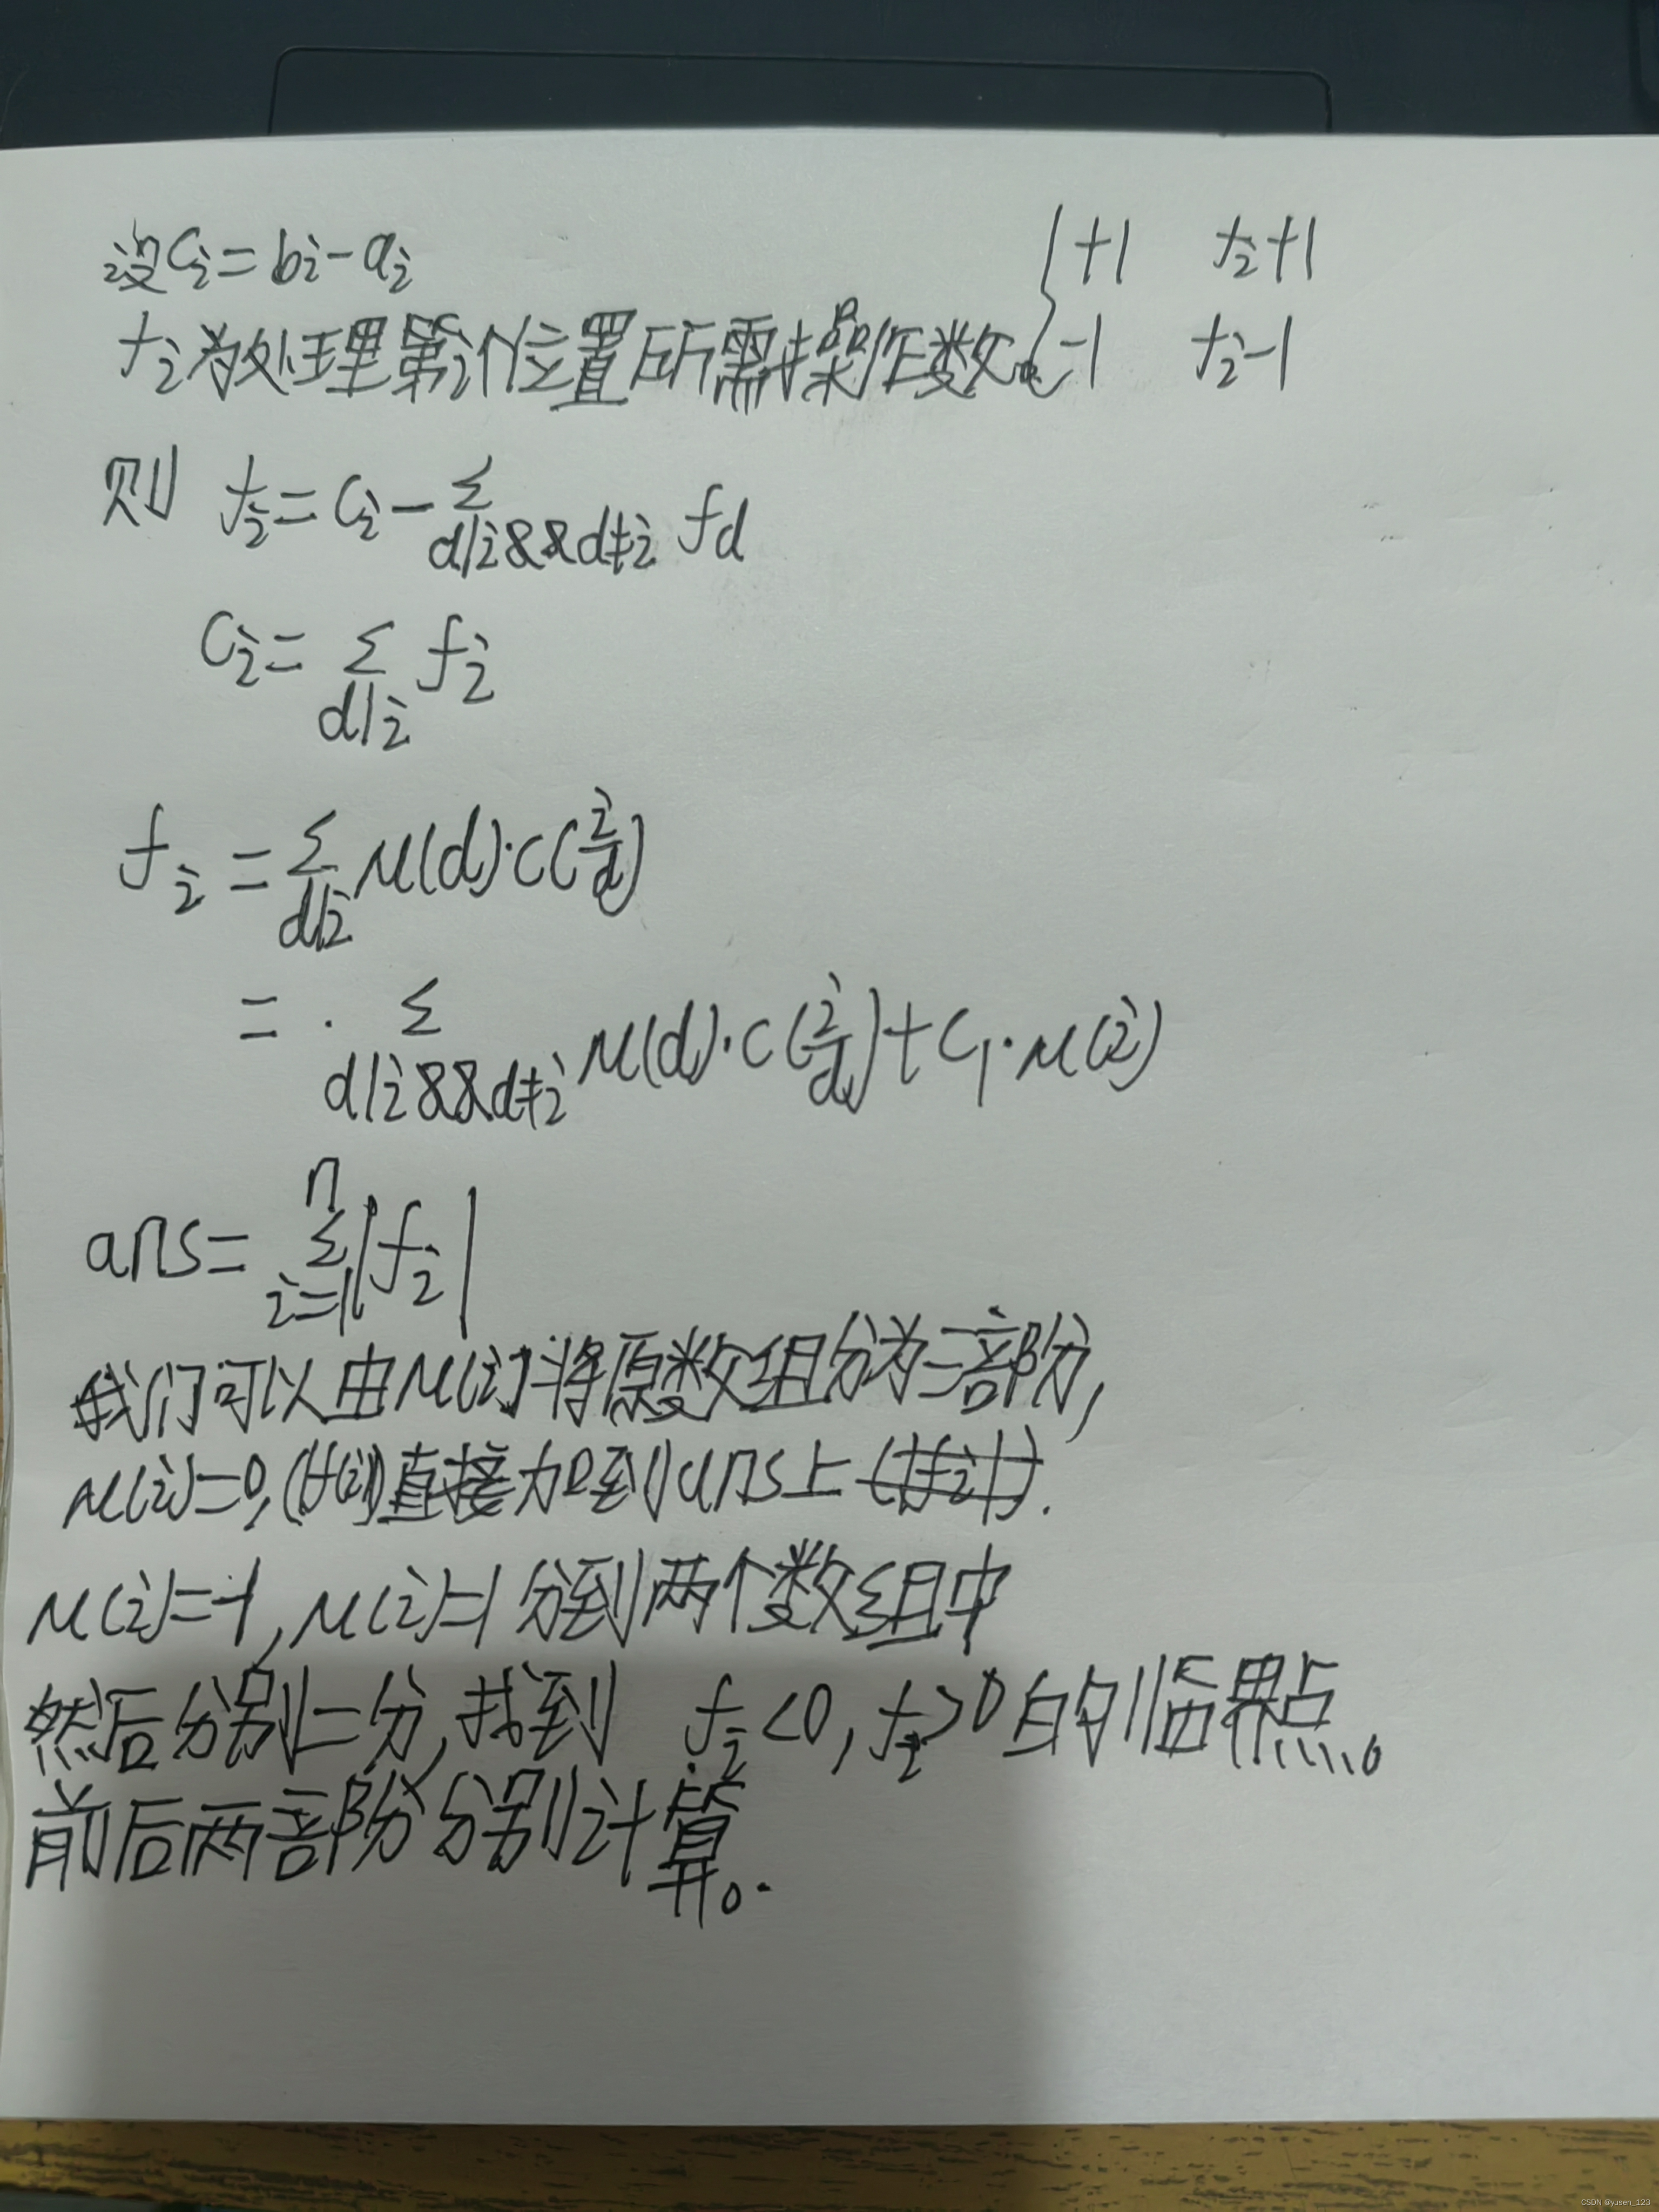 设cᵢ=bᵢ-aᵢ
fᵢ为处理第i个位置所需操作数。{+1 fᵢ+1
-1 fᵢ-1
则 fᵢ=cᵢ-Σ_{d|i&&d≠i} f_d
cᵢ=Σ_{d|i} fᵢ
fᵢ=Σ_{d|i} μ(d)·c(i/d)
=·Σ_{d|i&&d≠i} μ(d)·c(i/d)+c₁·μ(i)
ans=Σ_{i=1}^{n}|fᵢ|
我们可以由μ(i)将原数组分为三部分,
μ(i)=0,(|f(i)|)直接加到ans上(|fᵢ|).
μ(i)=-1,μ(i)=1分到两个数组中
然后分别二分,找到 fᵢ<0,fᵢ>0的临界点。
前后两部分分别计算。.
CSDN @yusen_123